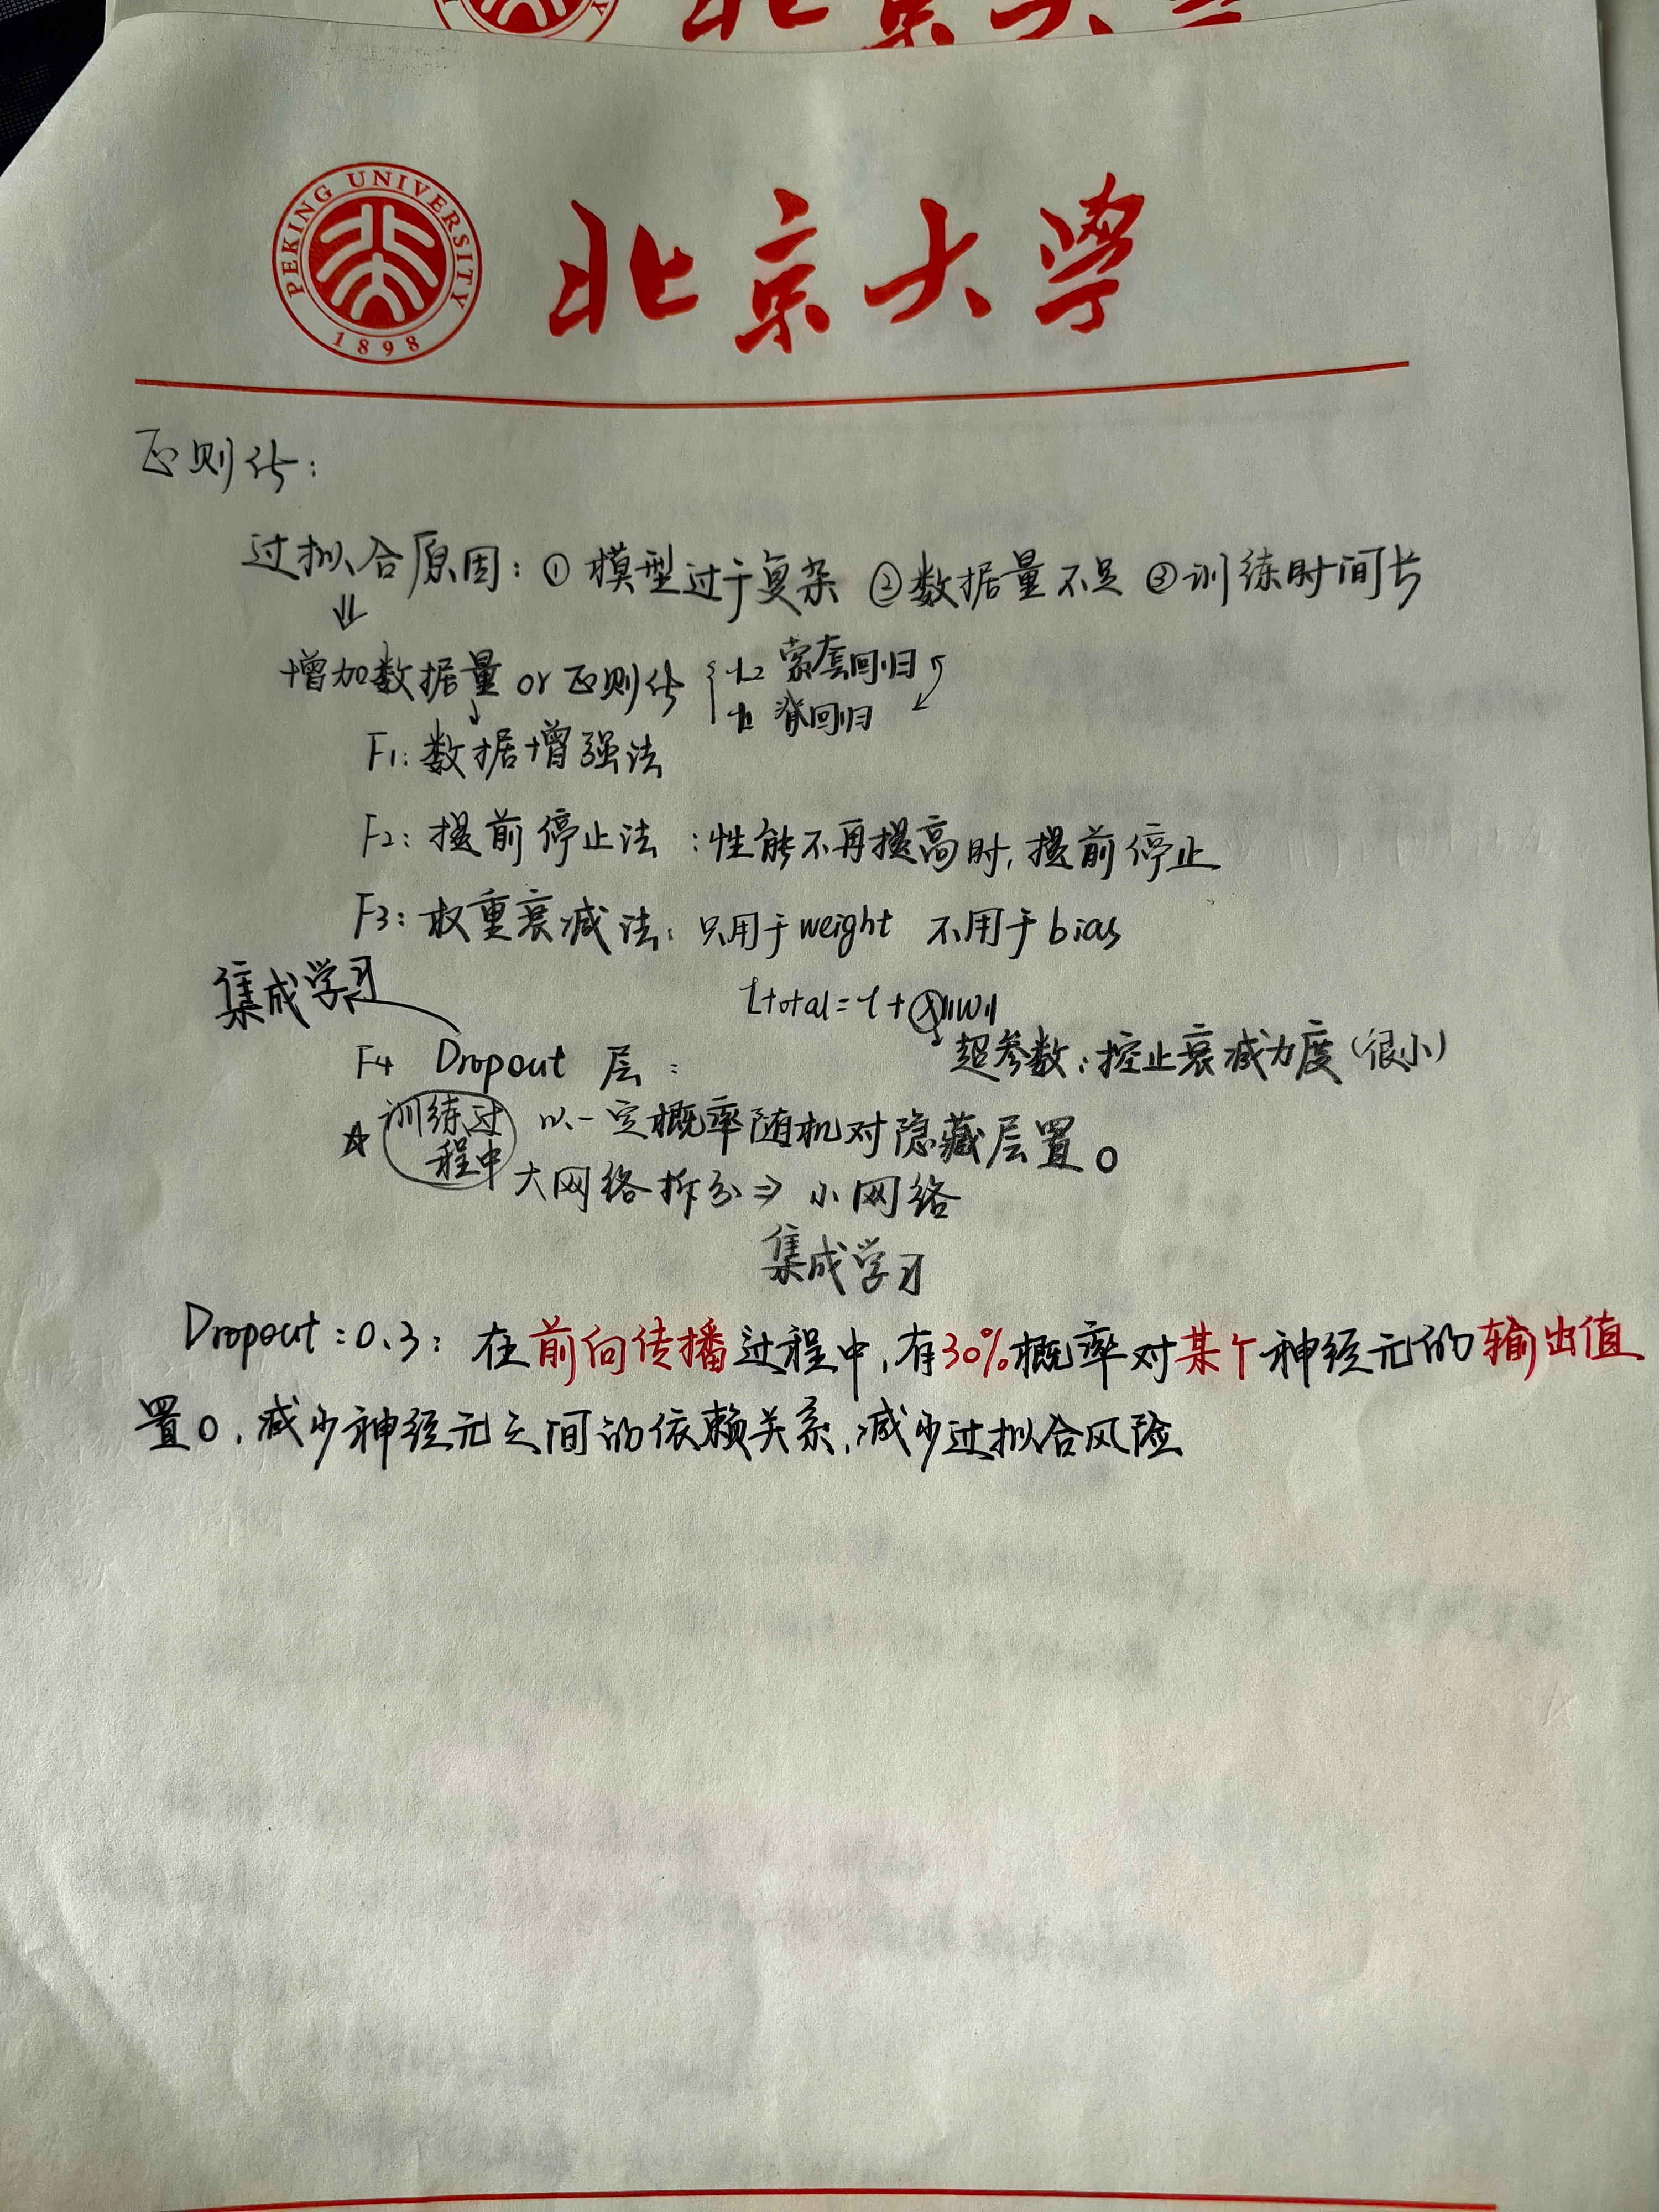 PEKING UNIVERSITY 1898
北京大学
正则化:
过拟合原因: ① 模型过于复杂 ②数据量不足 ③训练时间长
增加数据量 or 正则化 { L2 索套回归
脊回归
F1: 数据增强法
F2: 提前停止法 : 性能不再提高时, 提前停止
F3: 权重衰减法: 只用于weight 不用于bias
集成学习
Ltotal = L + λ||w||
超参数: 控止衰减力度 (很小)
F4 Dropout 层:
☆ 训练过程中 以一定概率随机对隐藏层置0
大网络拆分⇒ 小网络
集成学习
Dropout: 0.3: 在前向传播过程中, 有30%概率对某个神经元的输出值
置0, 减少神经元之间的依赖关系, 减少过拟合风险